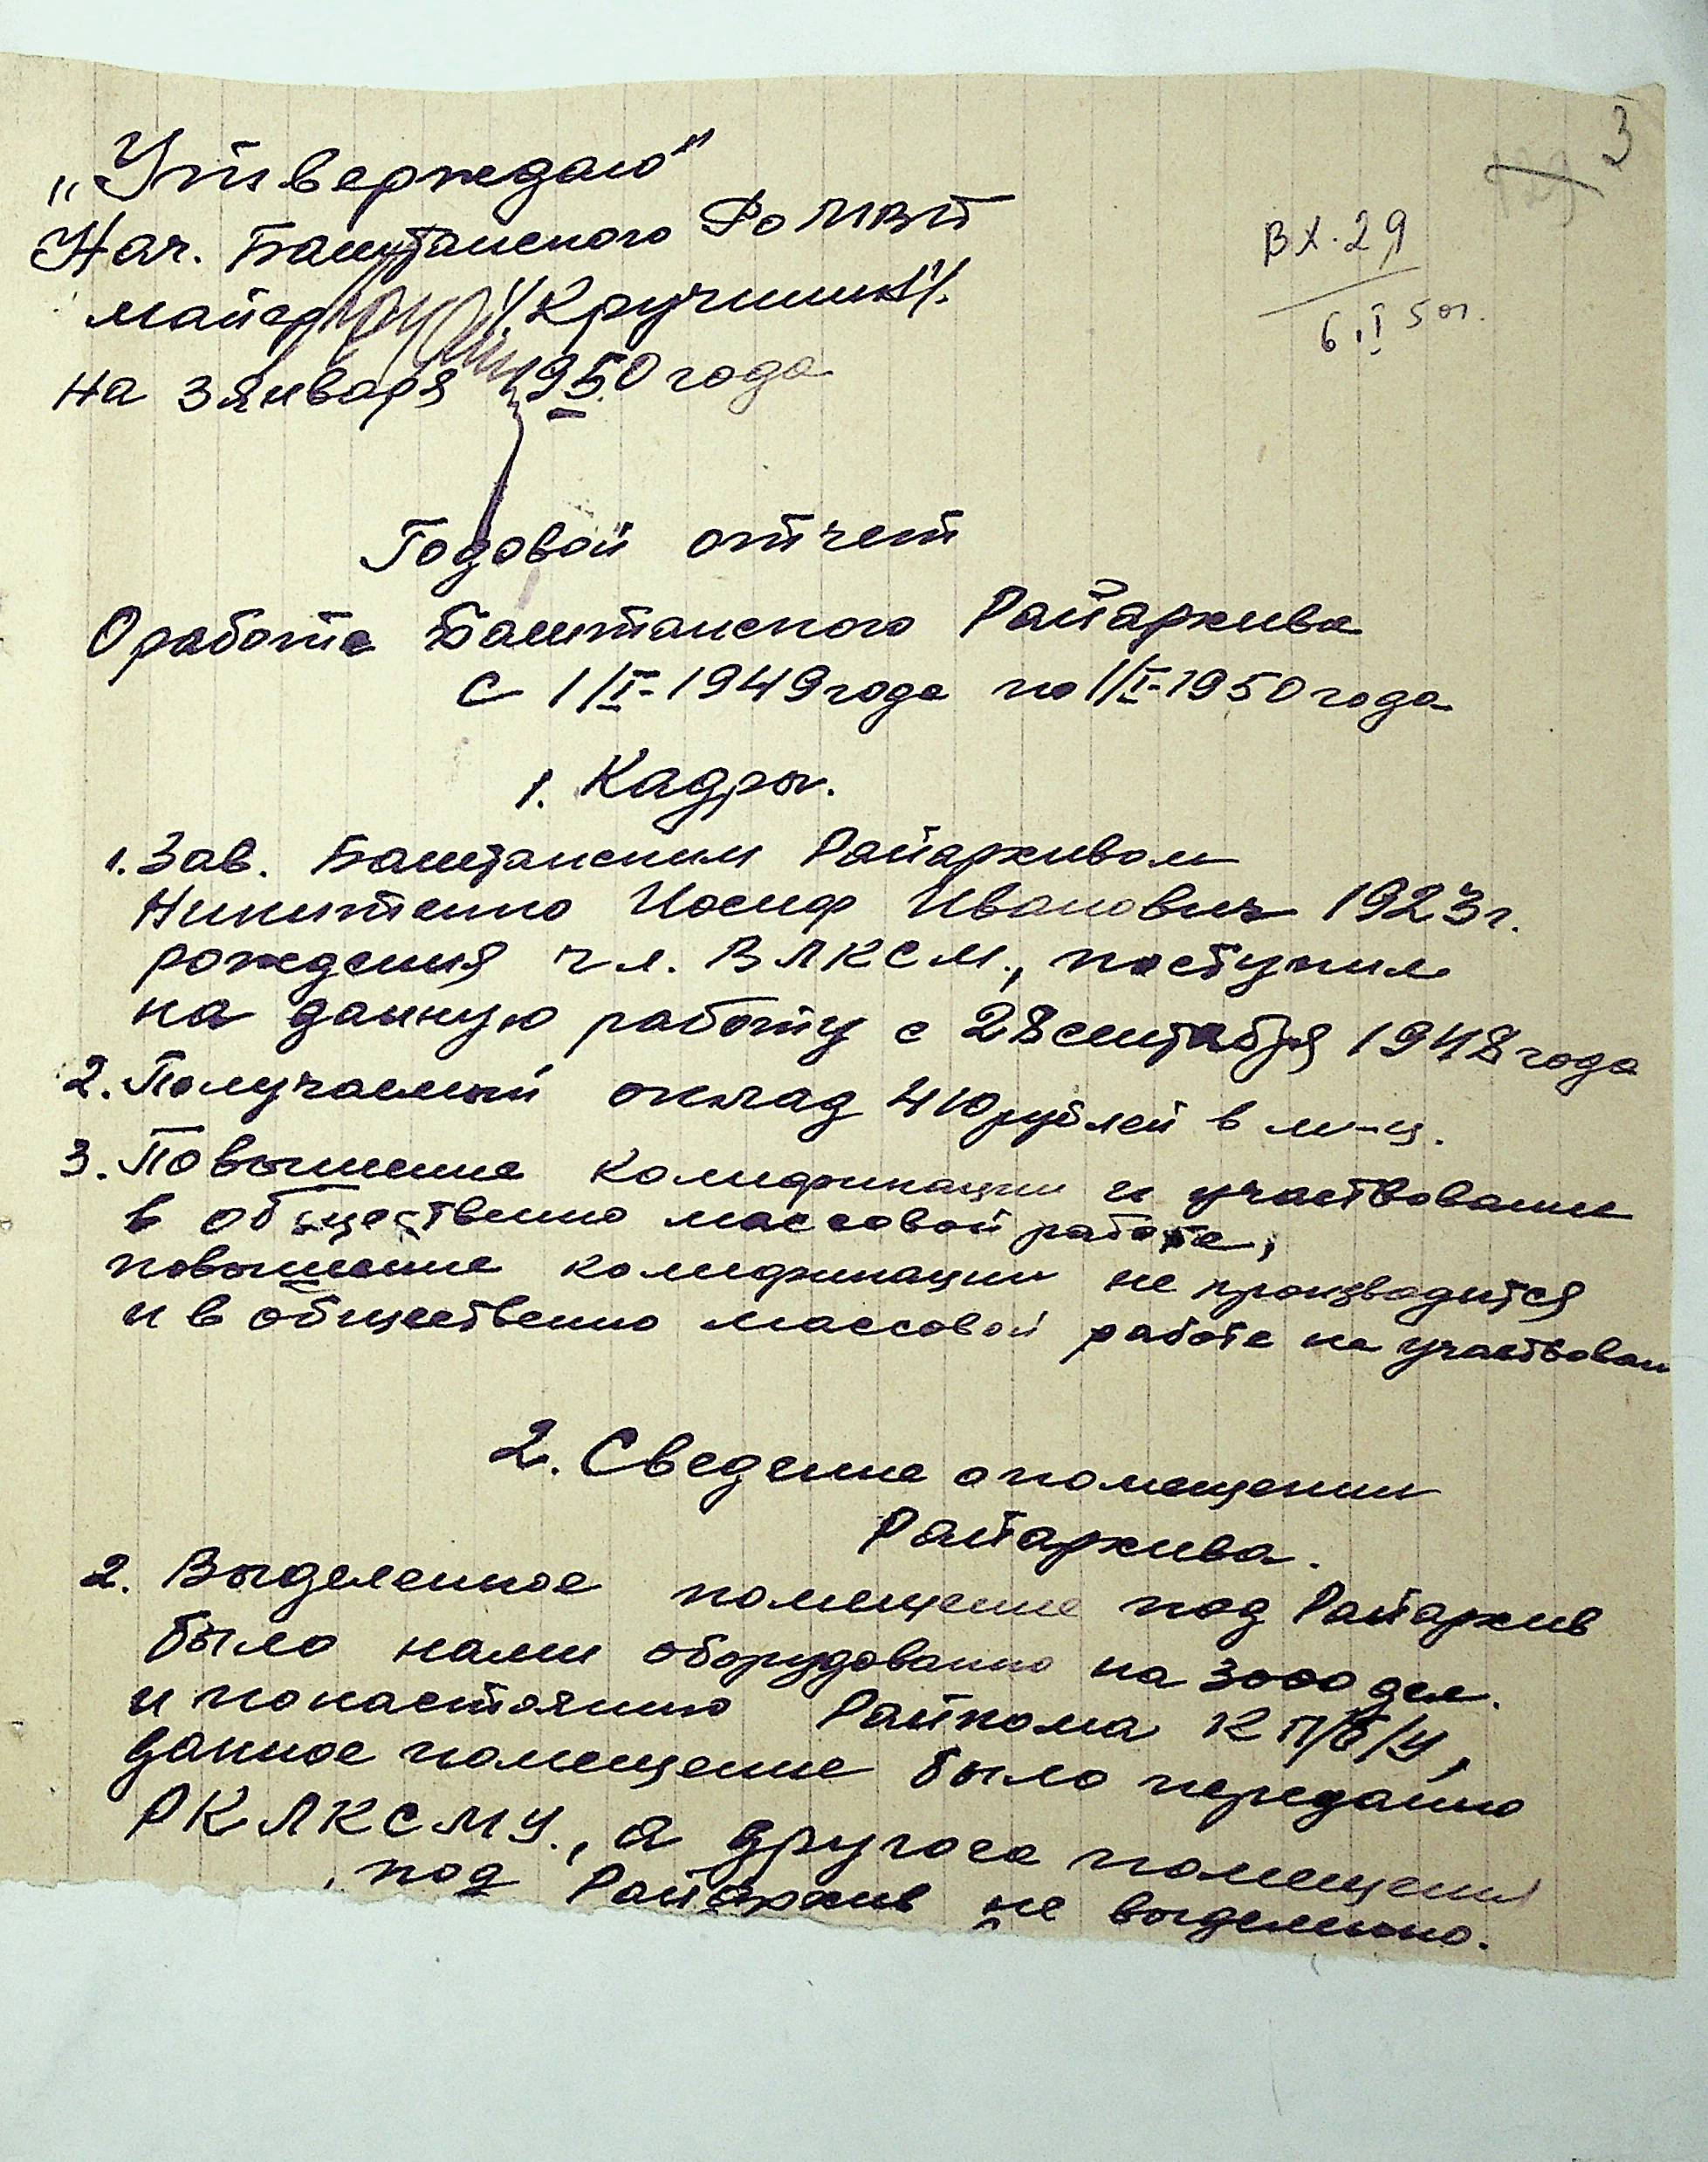 3
129
Вх. 29
6.I 50г.
„Утверждаю"
Нач. Баштанского Ро МВД
майор /Кручинин/.
на 3 января 1950 года
Годовой отчет
О работе Баштанского Райархива
с 1/I-1949 года по 1/I-1950 года
1. Кадры.
1. Зав. Баштанским Райархивом
Никитенко Иосиф Иванович 1923 г.
рождения чл. ВЛКСМ., поступил
на данную работу с 28 сентября 1948 года
2. Получаемый оклад 410 рублей в м-ц.
3. Повышение калификации и участвование
в общественно массовой работе,
повышение калификации не производится
и в общественно массовой работе не участвовал
2. Сведение о помещении
Райархива.
2. Выделенное помещение под Райархив
было нами оборудованно на 3000 дел.
и по настоянию Райкома КП/б/У,
данное помещение было переданно
РКЛКСМУ., а другога помещения
под Райархив не выделенно.